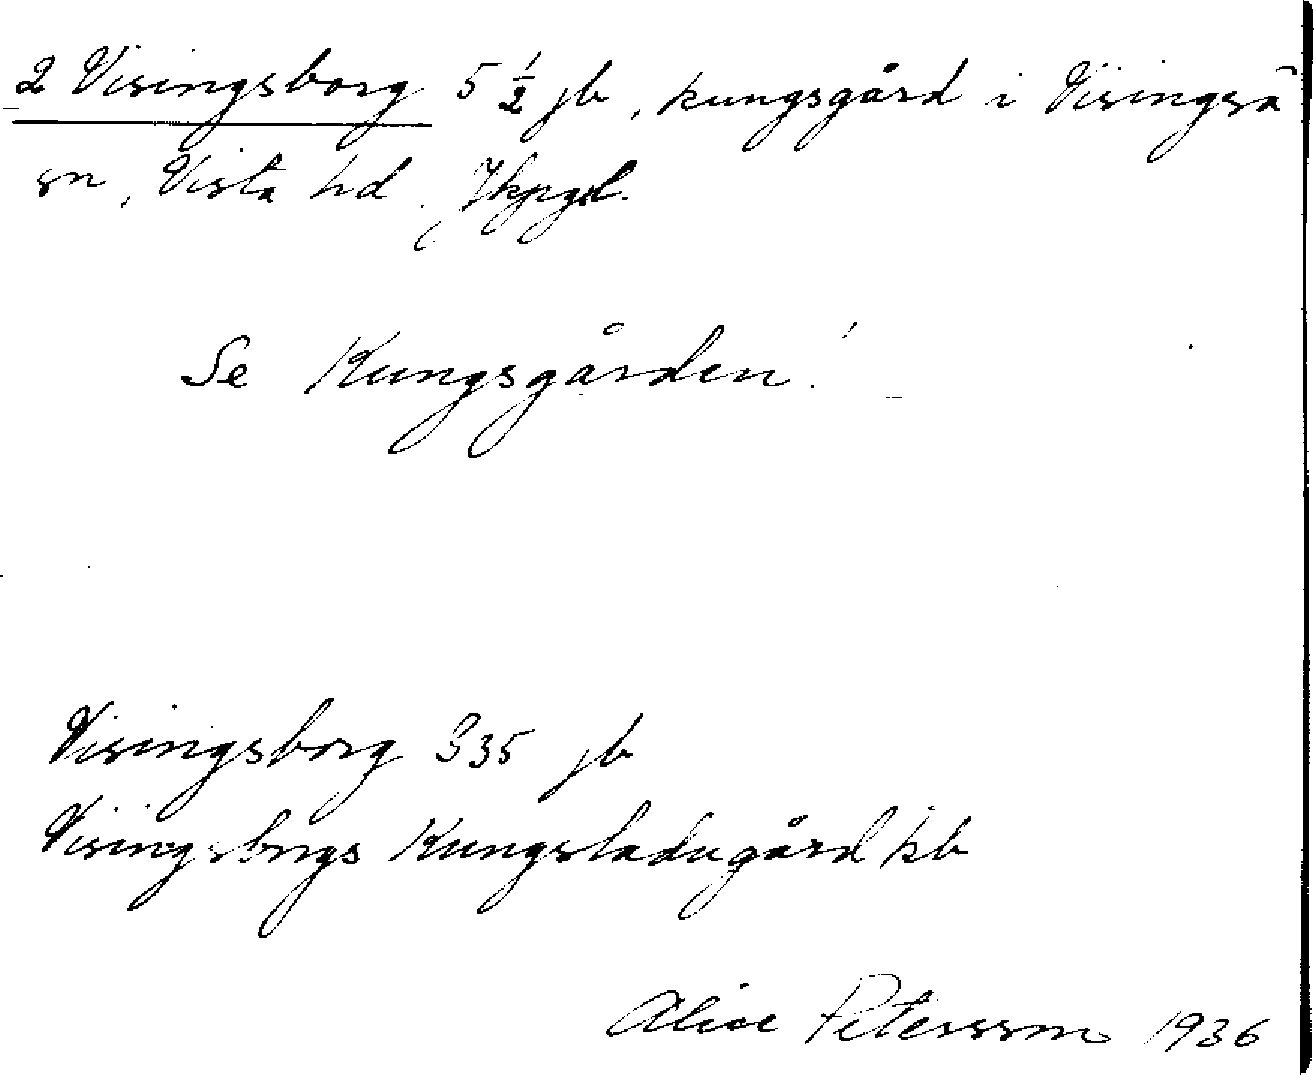 2 Visingsborg 5 1/2 jb, kungsgård i Visingsö
sn, Vista hd. Jkpgsl.
Se Kungsgården!
Visingsborg 335 jb
Visingsbrgs Kungsladugård kb
Alice Petersson 1936